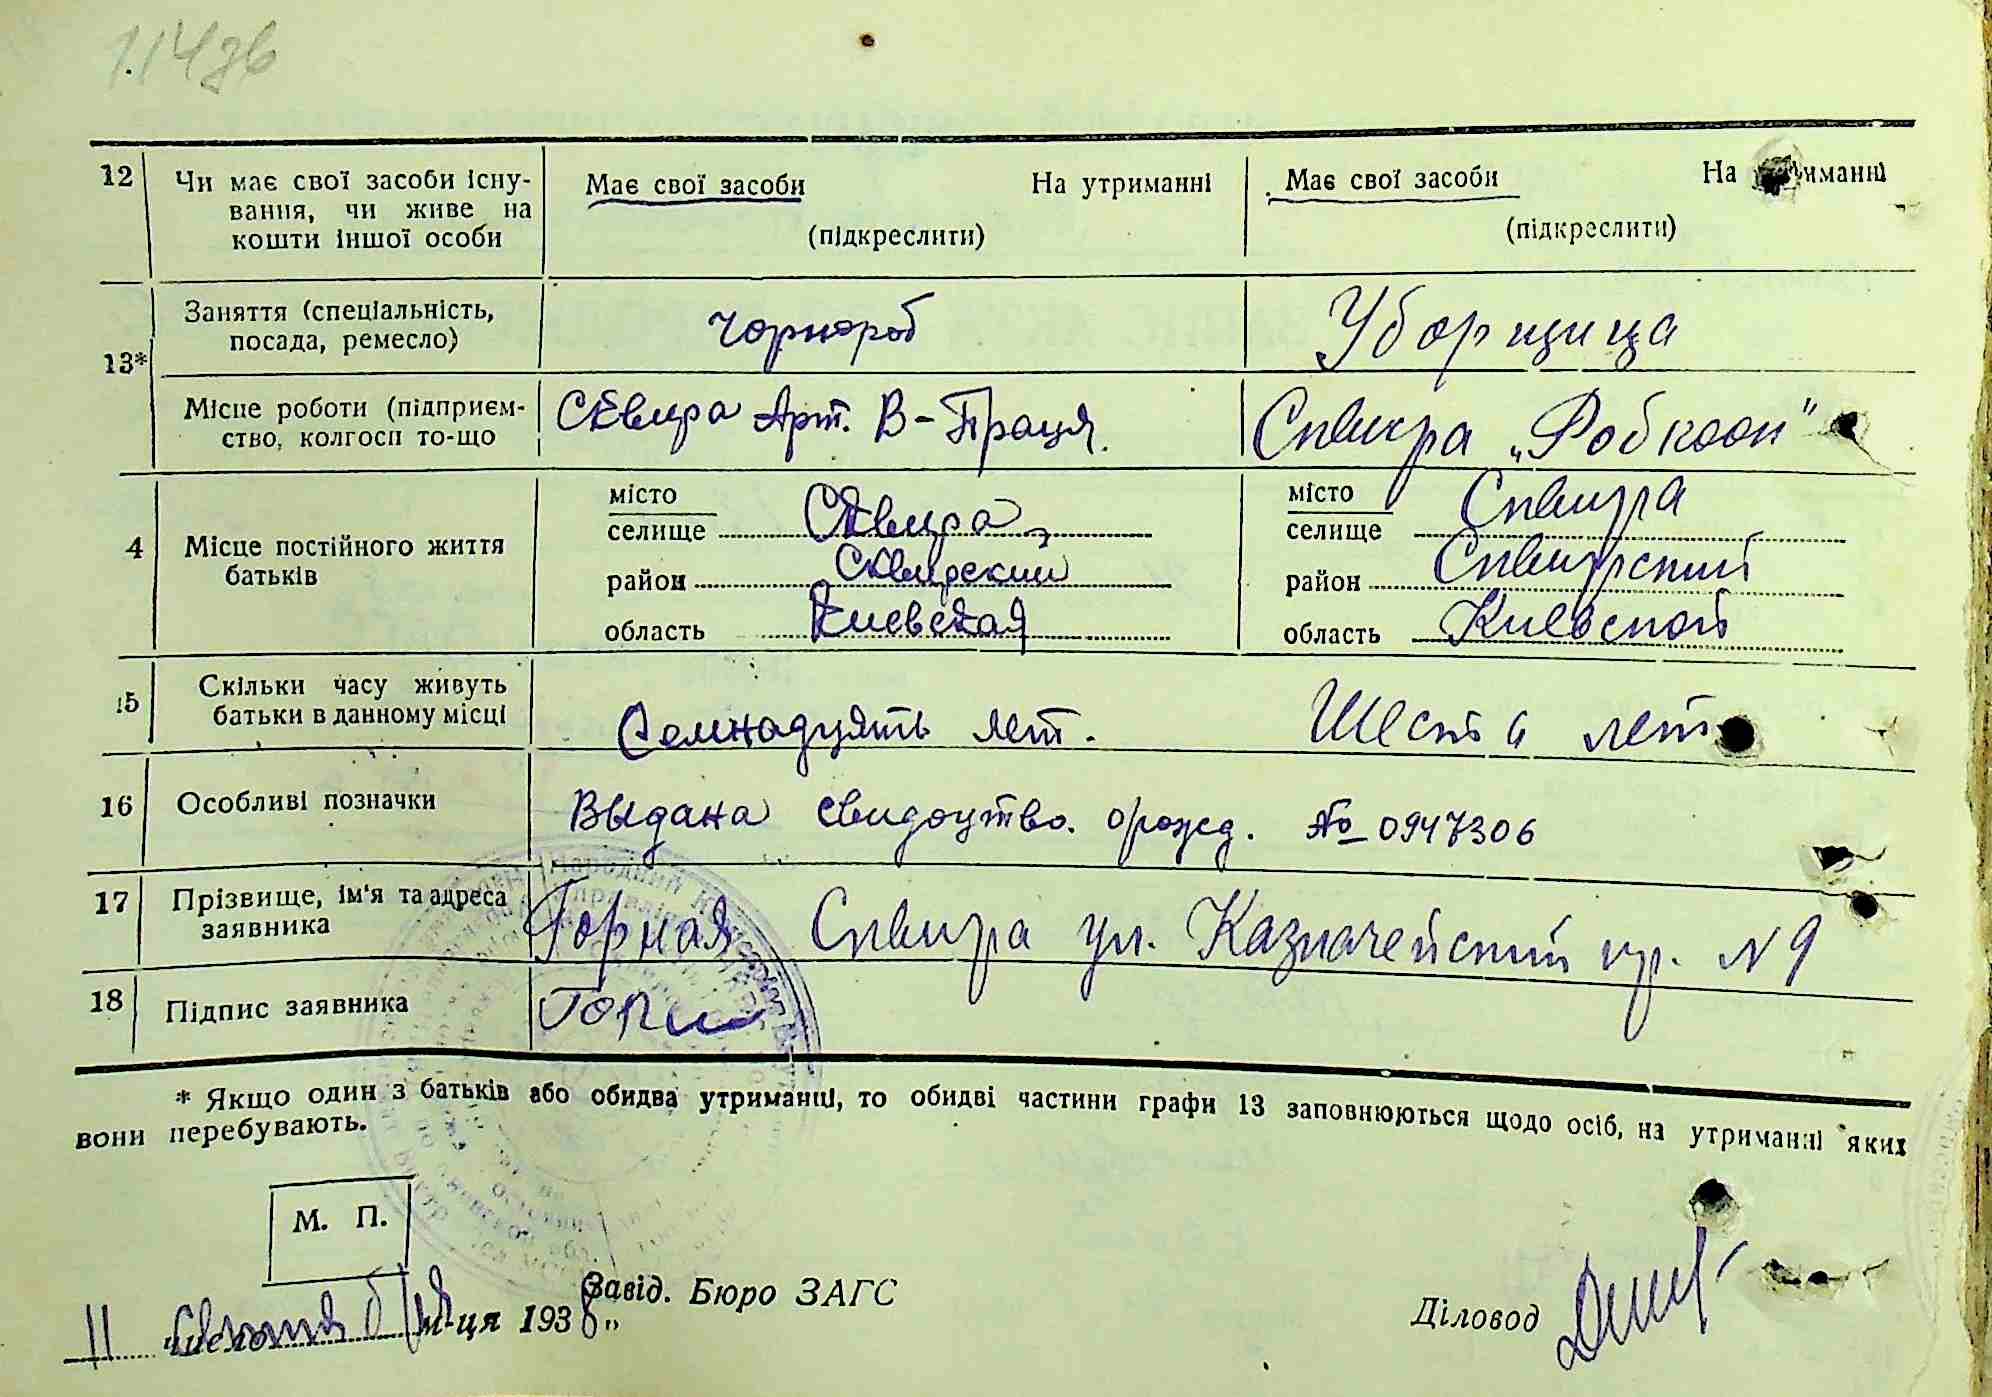 12 Чи має свої засоби існу- Має свої засоби На утриманні Має свої засоби На иманні
вання, чи живе на
кошти іншої особи (підкреслити) (підкреслити)
Заняття (спеціальність, чорнороб Уборщица
посада, ремесло)
13*
Місце роботи (підприєм- Сквира Арт. В-Праця. Сквира „Робкооп"
ство, колгосп то-що
місто Сквира місто Сквира
селище селище
4 Місце постійного життя
батьків район Сквирский район Сквирский
область Киевская область Киевской
15 Скільки часу живуть
батьки в данному місці Семнадцять лет. Шесть лет
16 Особливі позначки Выдана свидоцтво. орожд. № 0947306
17 Прізвище, ім'я та адреса Горная Сквира ул. Казначейский пр. N 9
заявника
18 Підпис заявника
* Якщо один з батьків або обидва утриманці, то обидві частини графи 13 заповнюються щодо осіб, на утриманні яких
вони перебувають.
М. П.
Завід. Бюро ЗАГС
11 числа сентября м-ця 1938 Діловод